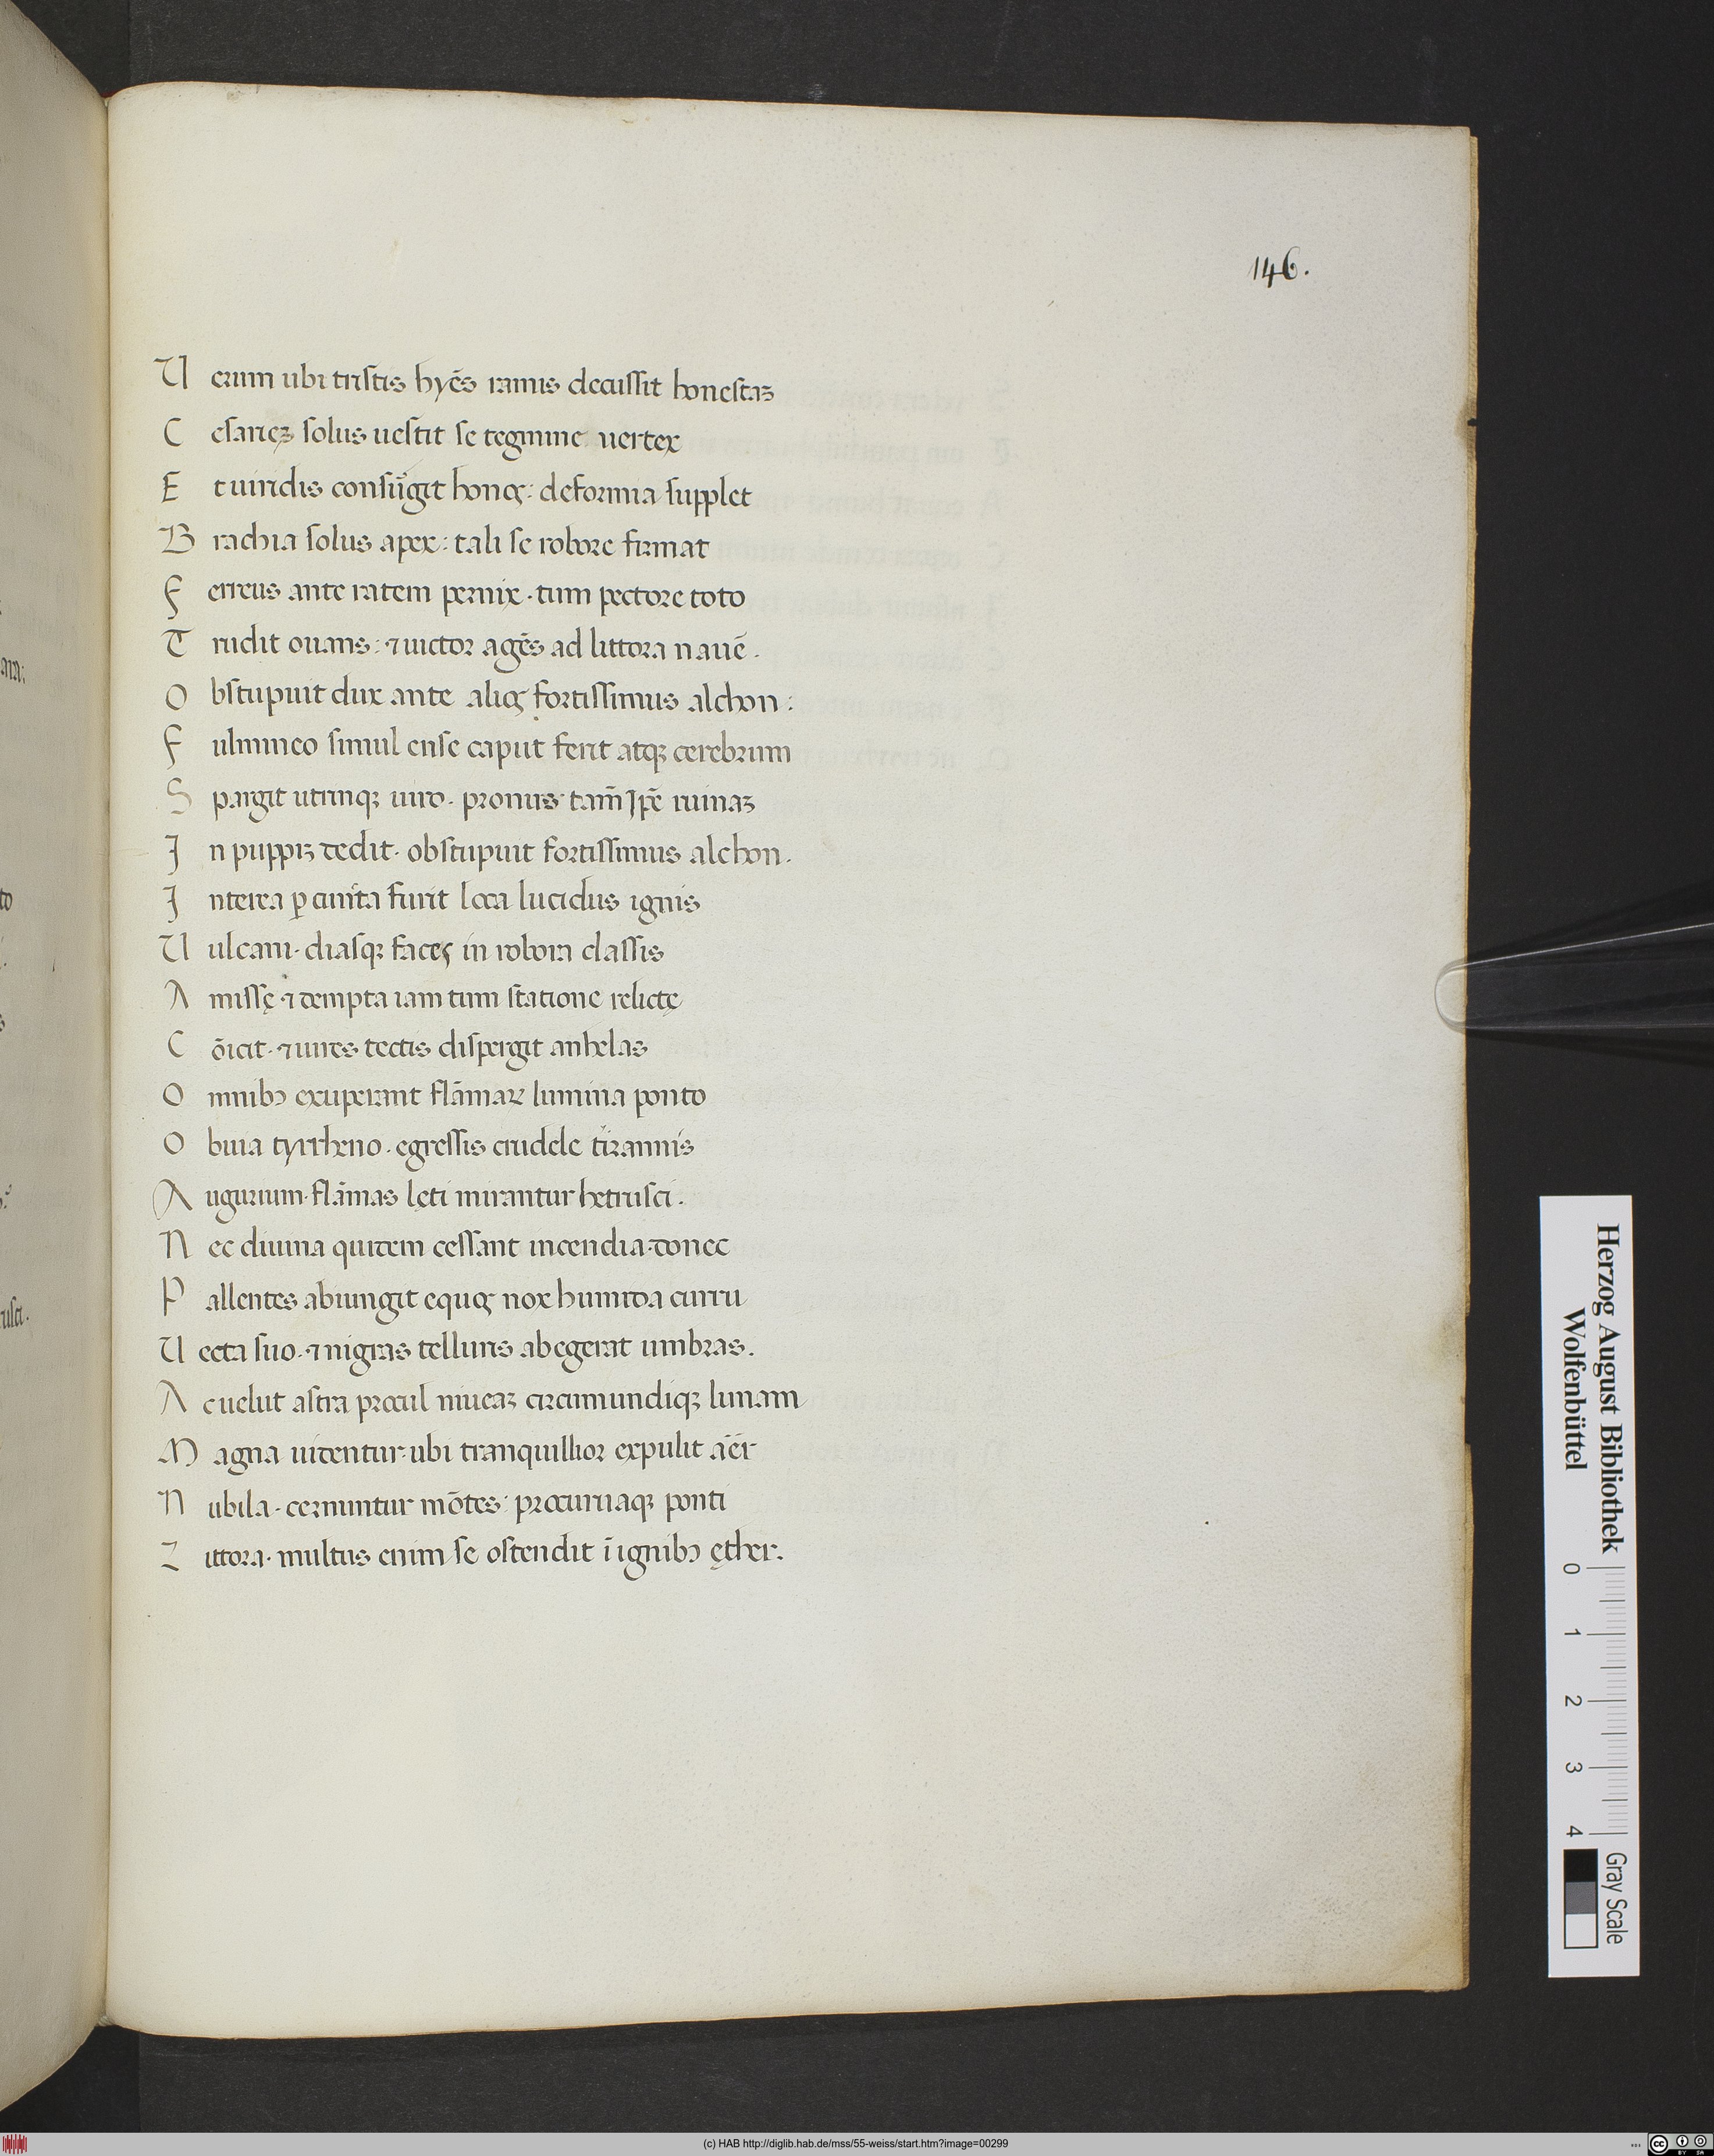 146.
U erum ubi tristis hyēs ramis decussit honestaꝫ
C esarieꝫ solus uestit se tegmine uertex
E t uiridis consurgit honos: deformia supplet
B rachia solus apex: tali se robore firmat
F erreus ante ratem pernix · tum pectore toto
T rudit ouans: ⁊ uictor agēs ad littora nauē .
O bstupuit dux ante alios fortissimus alchon :
F ulmineo simul ense caput ferit atqꝫ cerebrum
S pargit utrinqꝫ uiro · pronus tam̄ ip̄e ruinaꝫ
I n puppiꝫ dedit · obstupuit fortissimus alchon .
I nterea ꝑ cūcta furit loca lucidus ignis
U ulcani · diasqꝫ faces in robora classis
A missę ⁊ dempta iam tum statione relictę
C ōicit · ⁊ uires tectis dispergit anhelas
O mnibꝰ exuperant flāmaꝝ lumina ponto
O buia tyrrheno · egressis crudele tirannis
A ugurium · flāmas lęti mirantur hetrusci .
N ec diuina quidem cessant incendia · donec
P allentes abiungit equos nox humida curru
U ecta suo · ⁊ nigras telluris abegerat umbras .
A c uelut astra procul niueaꝫ circumundiqꝫ lunam
M agna uidentur · ubi tranquillior expulit aēr
N ubila · cernuntur mōtes : procuruaqꝫ ponti
L ittora · multus enim se ostendit ī ignibꝰ ęther .
Herzog August Bibliothek
Wolfenbüttel
0 1 2 3 4
Gray Scale
(c) HAB http://diglib.hab.de/mss/55-weiss/start.htm?image=00299